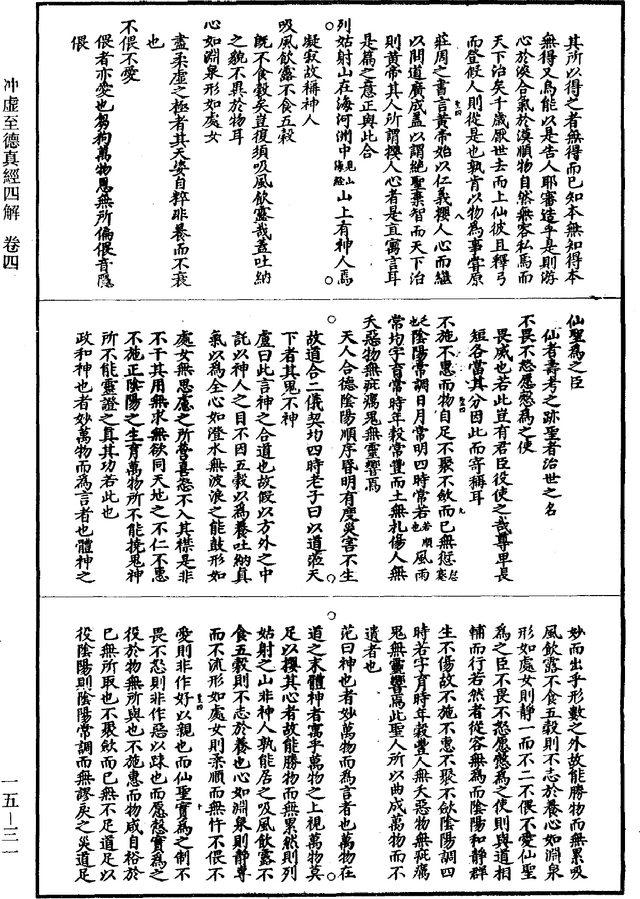 其所以得之者無得而已知本無知得本
無得又烏能以是告人耶審造乎是則游
心於淡合氣於漠順物自然無容私焉而
天下治矣千歲厭世去而上仙彼且釋弓
而登假人則從是也孰肯以物為事嘗原
莊周之書言黃帝始以仁義攖人心而繼
以問道廣成蓋以謂絕聖棄智而天下治
則黃帝其人所謂攖人心者是直寓言耳
是篇之意正與此合
列姑射山在海河洲中見山海經山上有神人焉
凝寂故稱神人
吸風飲露不食五穀
既不食穀矣豈復須吸風飲露哉蓋吐納
之貌不異於物耳
心如淵泉形如處女
盡柔虛之極者其天姿自粹非養而不衰
也
不偎不愛
偎者亦愛也芻狗萬物恩無所偏偎音隱
偎
仙聖為之臣
仙者壽考之跡聖者治世之名
不畏不怒愿慤為之使
畏威也若此豈有君臣役使之哉尊卑長
短各當其分因此而寄稱耳
不施不惠而物自足不聚不斂而已無愆
陰陽常調日月常明四時常若若順也風雨
常均字育常時年穀常豐而土無札傷人無
夭惡物無疵癘鬼無靈響焉
天人合德陰陽順序昏明有度災害不生
故道合二儀契均四時老子曰以道涖天
下者其鬼不神
盧曰此言神之合道也故假以方外之中
託以神人之目不因五穀以為養吐納真
氣以為全心如澄水無波浪之能鼓形如
處女無思慮之所營喜怒不入其襟是非
不干其用無求無欲同天地之不仁不惠
不施正陰陽之生育萬物所不能撓鬼神
所不能靈證之真其功若此也
政和神也者妙萬物而為言者也體神之
妙而出乎形數之外故能勝物而無累吸
風飲露不食五穀則不志於養心如淵泉
形如處女則靜一而不二不偎不愛仙聖
為之臣不畏不怒愿慤為之使則與道相
輔而行若然者從容無為而陰陽和靜群
生不傷故不施不惠不聚不斂陰陽調四
時若字育時年穀豐人無夭惡物無疵癘
鬼無靈響焉此聖人所以曲成萬物而不
遺者也
范曰神也者妙萬物而為言者也萬物在
道之末體神者寓乎萬物之上視萬物莫
足以攖其心者故能勝物而無累然則列
姑射之山非神人孰能居之吸風飲露不
食五穀則不志於養也心如淵泉則靜專
而不流形如處女則柔順而無忤不偎不
愛則非作好以親也而仙聖實為之制不
畏不怒則非作惡以疎也而愿慤實為之
役於物無所與也不施惠而物咸自裕於
己無所取也不聚斂而已無不足道足以
役陰陽則陰陽常調而無謬戾之災道足
沖虛至德真經四解 卷四
一五—三一